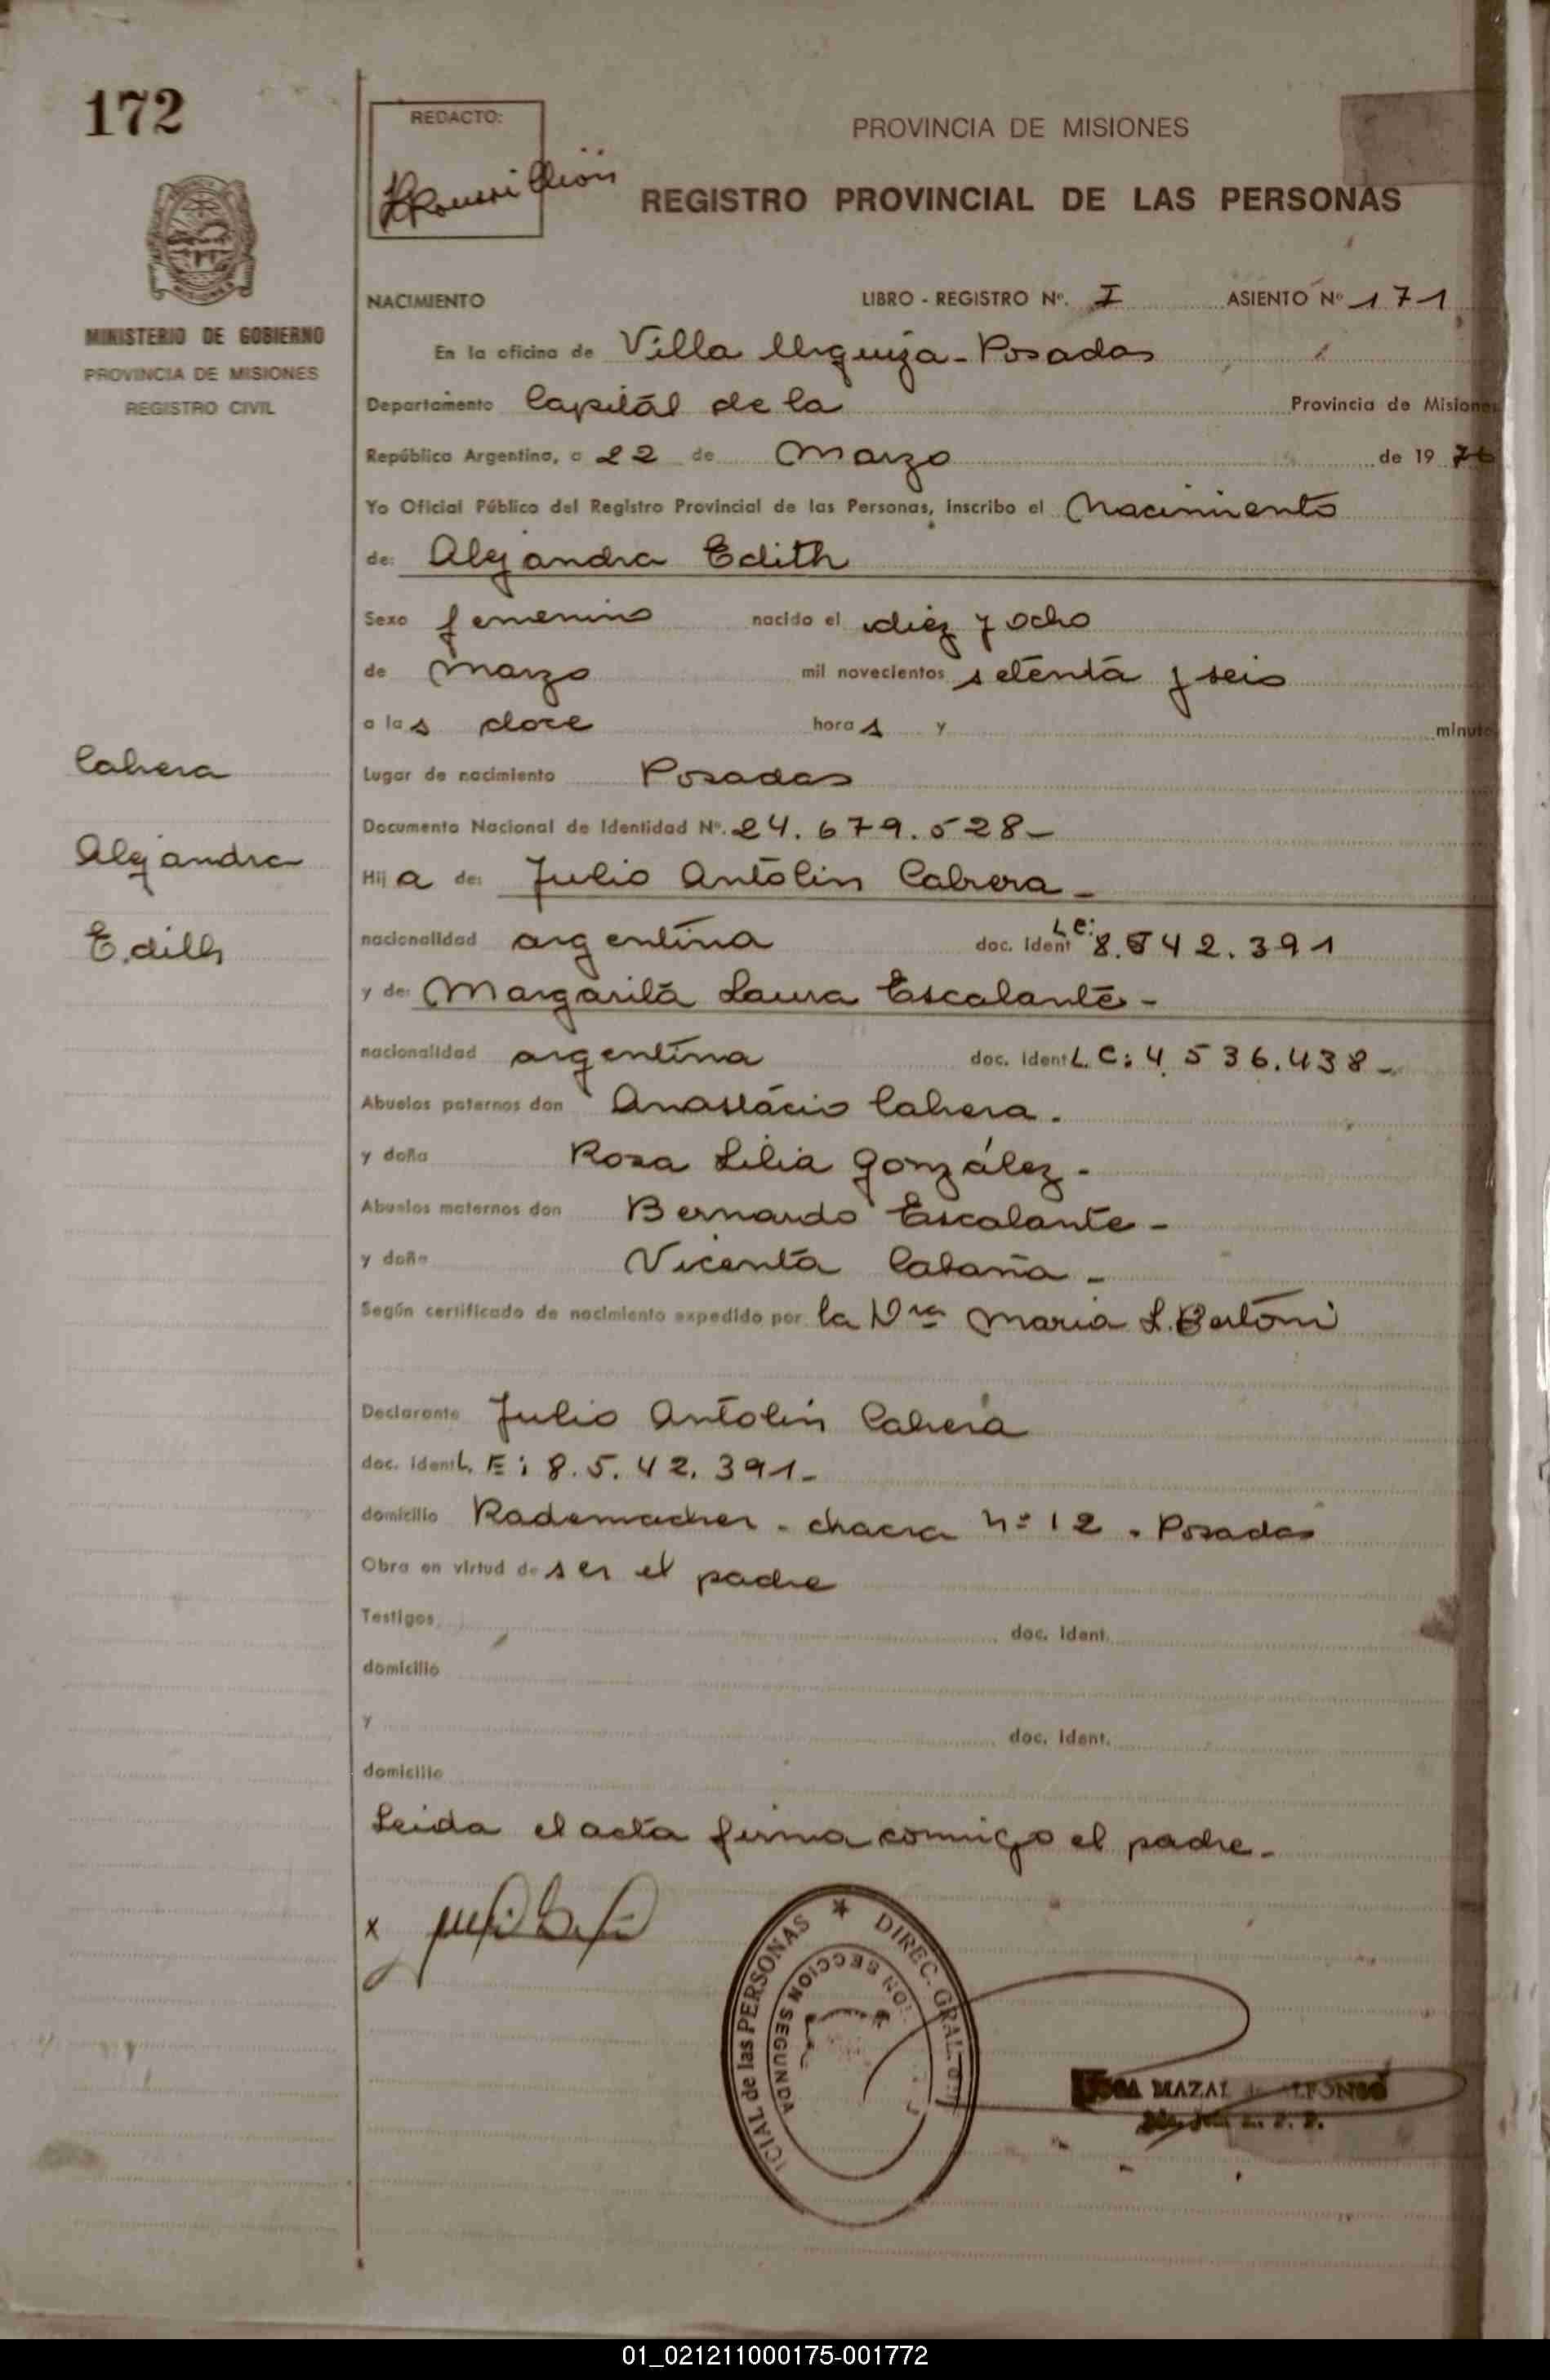 172
REDACTO:
PROVINCIA DE MISIONES
REGISTRO PROVINCIAL DE LAS PERSONAS
MINISTERIO DE GOBIERNO
PROVINCIA DE MISIONES
REGISTRO CIVIL
NACIMIENTO LIBRO - REGISTRO Nº. I ASIENTO Nº 171
En la oficina de Villa Urquiza - Posadas
Departamento Capitál de la Provincia de Misiones
República Argentina, a 22 de Marzo de 1976
Yo Oficial Público del Registro Provincial de las Personas, inscribo el Nacimiento
de: Alejandra Edith
Sexo femenino nacido el diez y ocho
de Marzo mil novecientos setenta y seis
a las doce horas y minutos
Cabrera
Lugar de nacimiento Posadas
Documento Nacional de Identidad Nº. 24.679.528-
Alejandra
Hija de: Julio Antolin Cabrera -
Edith
nacionalidad argentina doc. ident L.E: 8.542.391
y de: Margarita Laura Escalante -
nacionalidad argentina doc. ident L.C: 4.536.438-
Abuelos paternos don Anastácio Cabrera.
y doña Rosa Lilia González -
Abuelos maternos don Bernardo Escalante -
y doña Vicenta Cabaña -
Según certificado de nacimiento expedido por la Dra Maria L. Bertoni
Declarante Julio Antolin Cabrera
doc. ident L. E: 8.5.42.391-
domicilio Rademacher - chacra Nº 12 - Posadas
Obra en virtud de ser el padre
Testigos doc. ident.
domicilio
y doc. ident.
domicilio
Leida el acta firma conmigo el padre -
x
DIREC. GRAL. CIAL de las PERSONAS
SECCION SEGUNDA
MAZAL de ALFONSO
01_021211000175-001772